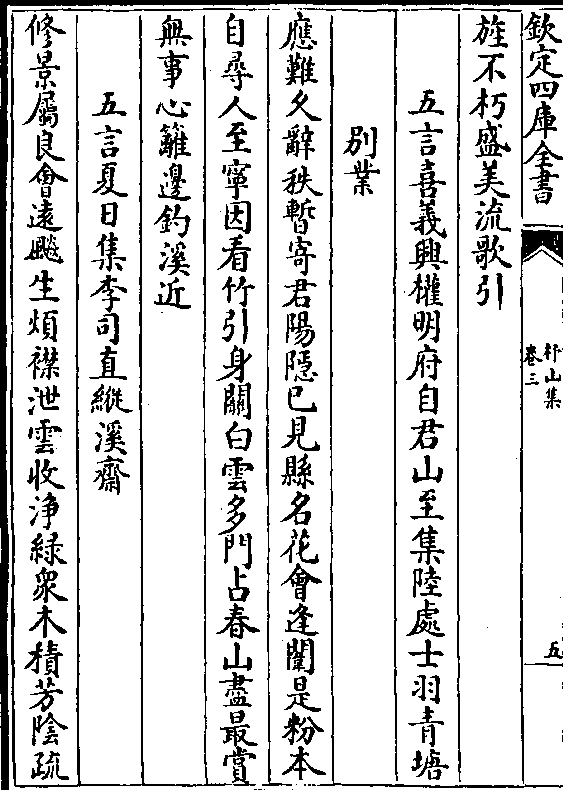 欽定四庫全書
杼山集
卷三
五
旌不朽盛美流歌引
五言喜義興權明府自君山至集陸處士羽青塘
別業
應難久辭秩暫寄君陽隱已見縣名花會逢闈是粉本
自尋人至寧因看竹引身關白雲多門占春山盡最賞
無事心籬邊釣溪近
五言夏日集李司直縱溪齋
修景屬良會遠飈生煩襟泄雲收浄緑衆木積芳陰疏